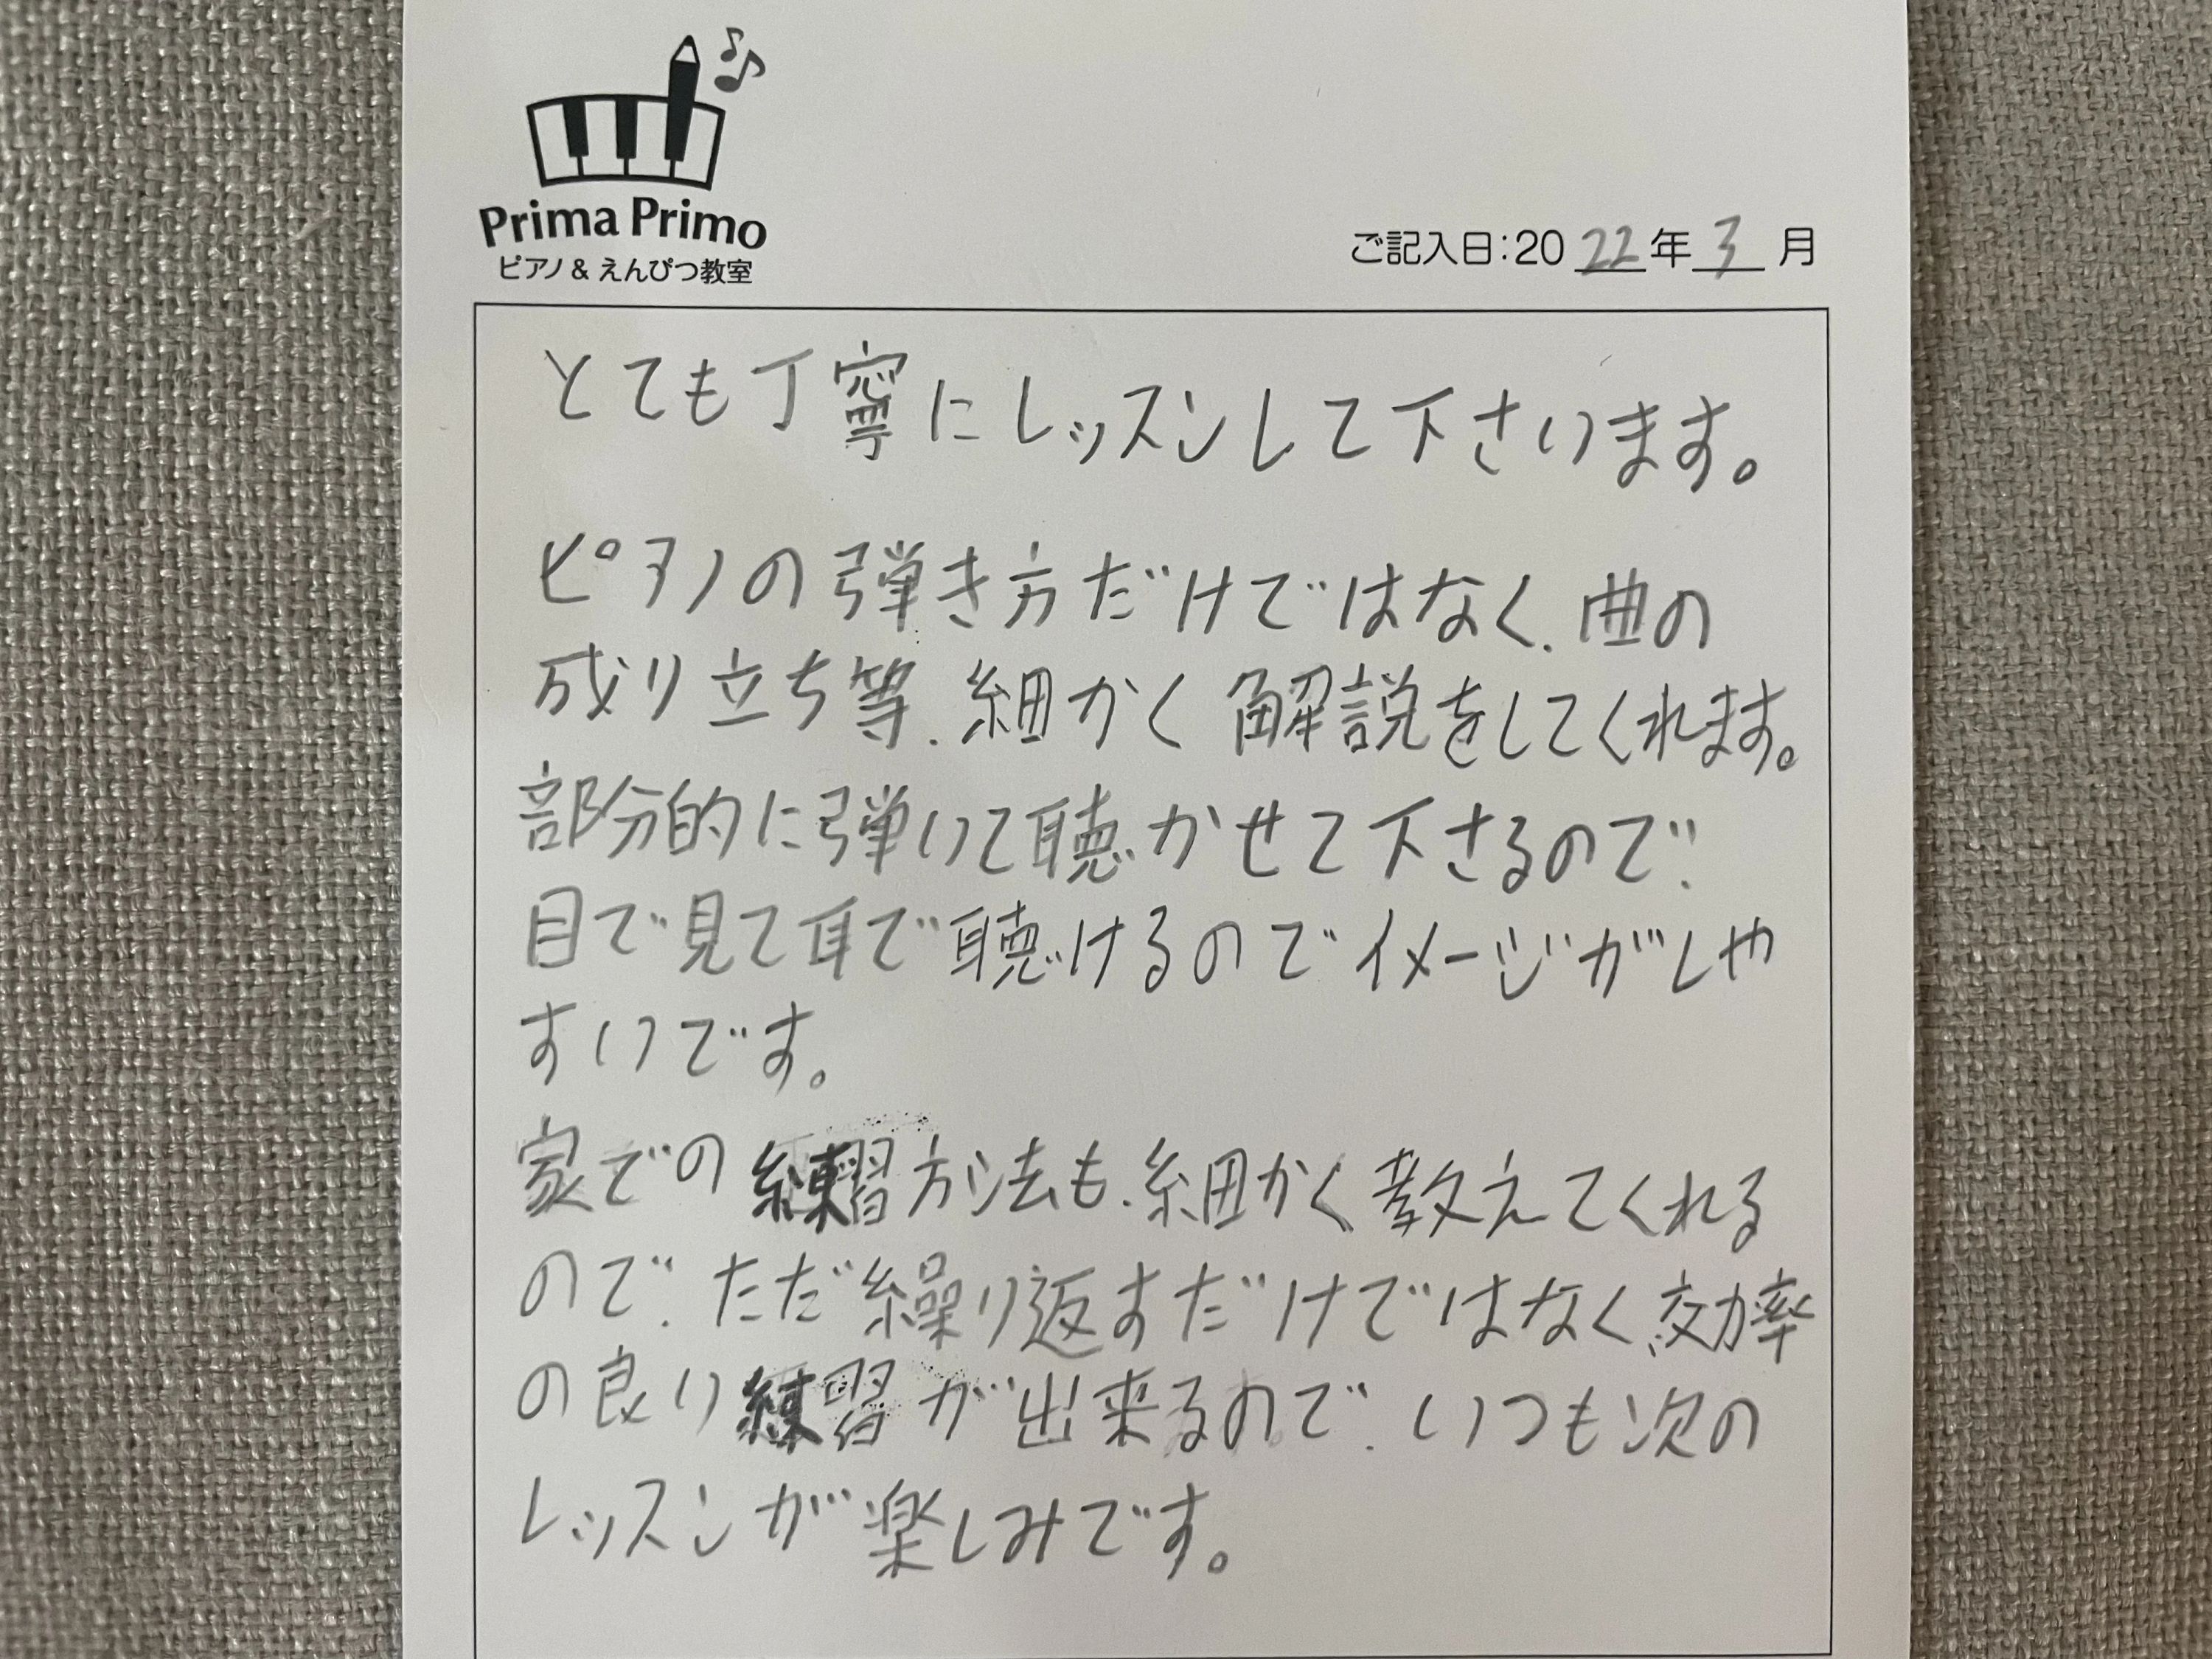 Prima Primo
ピアノ & えんぴつ教室
ご記入日:20 22 年 3 月
とても丁寧にレッスンして下さいます。
ピアノの弾き方だけではなく、曲の
成り立ち等、細かく解説をしてくれます。
部分的に弾いて聴かせて下さるので、
目で見て耳で聴けるのでイメージがしや
すいです。
家での練習方法も、細かく教えてくれる
ので、ただ繰り返すだけではなく、効率
の良い練習が出来るので、いつも次の
レッスンが楽しみです。